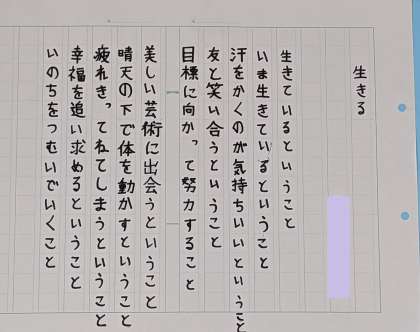 生きる
生きているということ
いま生きているということ
汗をかくのが気持ちいいということ
友と笑い合うということ
目標に向かって努力すること
美しい芸術に出会うということ
晴天の下で体を動かすということ
疲れきってねてしまうということ
幸福を追い求めるということ
いのちをつむいでいくこと